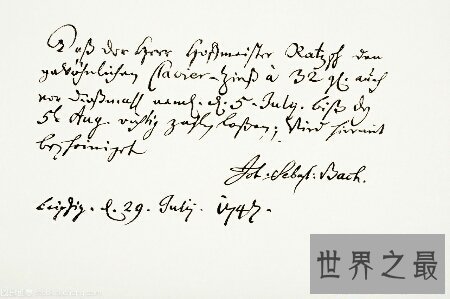 Daß der Herr Hoffmeister Ratzsch den
gewöhnlichen Clavier-Zinß à 32 gl. auch
vor dießmahl neml. d. 5. July. biß d.
5t Aug. richtig zahlen laßen; Wird hiermit
bescheiniget
Joh: Sebast: Bach.
Leipzig. d. 29. Julij. 1747.
世界之最